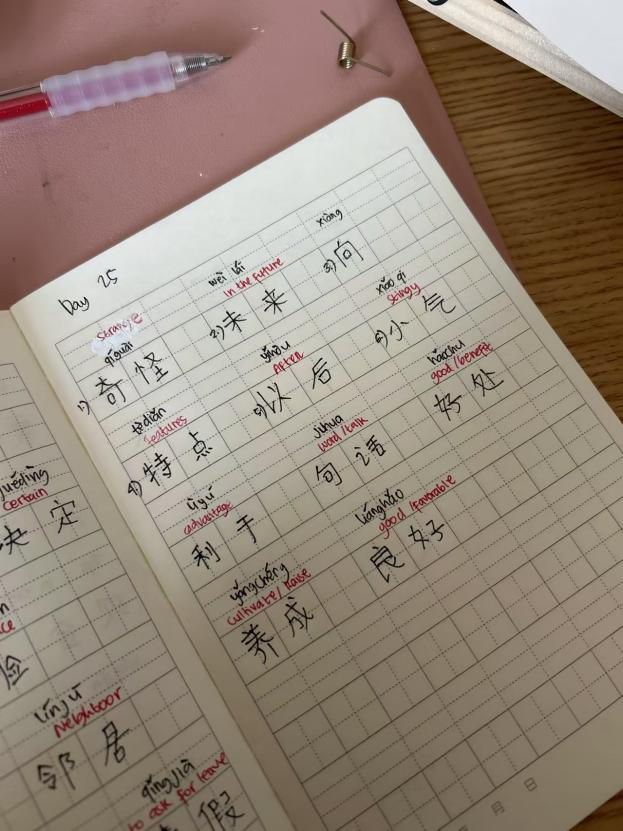 Day 25
strange
qíguài
1) 奇怪
wèi lái
in the future
2) 未来
xiàng
3) 向
tèdiǎn
features
4) 特点
yǐhòu
After
5) 以后
xiǎo qì
stingy
6) 小气
lìyú
advantage
利于
jùhuà
word/talk
句话
hǎochu
good/benefit
好处
yǎngchéng
cultivate/Raise
养成
liánghǎo
good/favorable
良好
juédìng
certain
决定
línjū
Neighboor
邻居
qǐngjià
to ask for leave
假
月 日